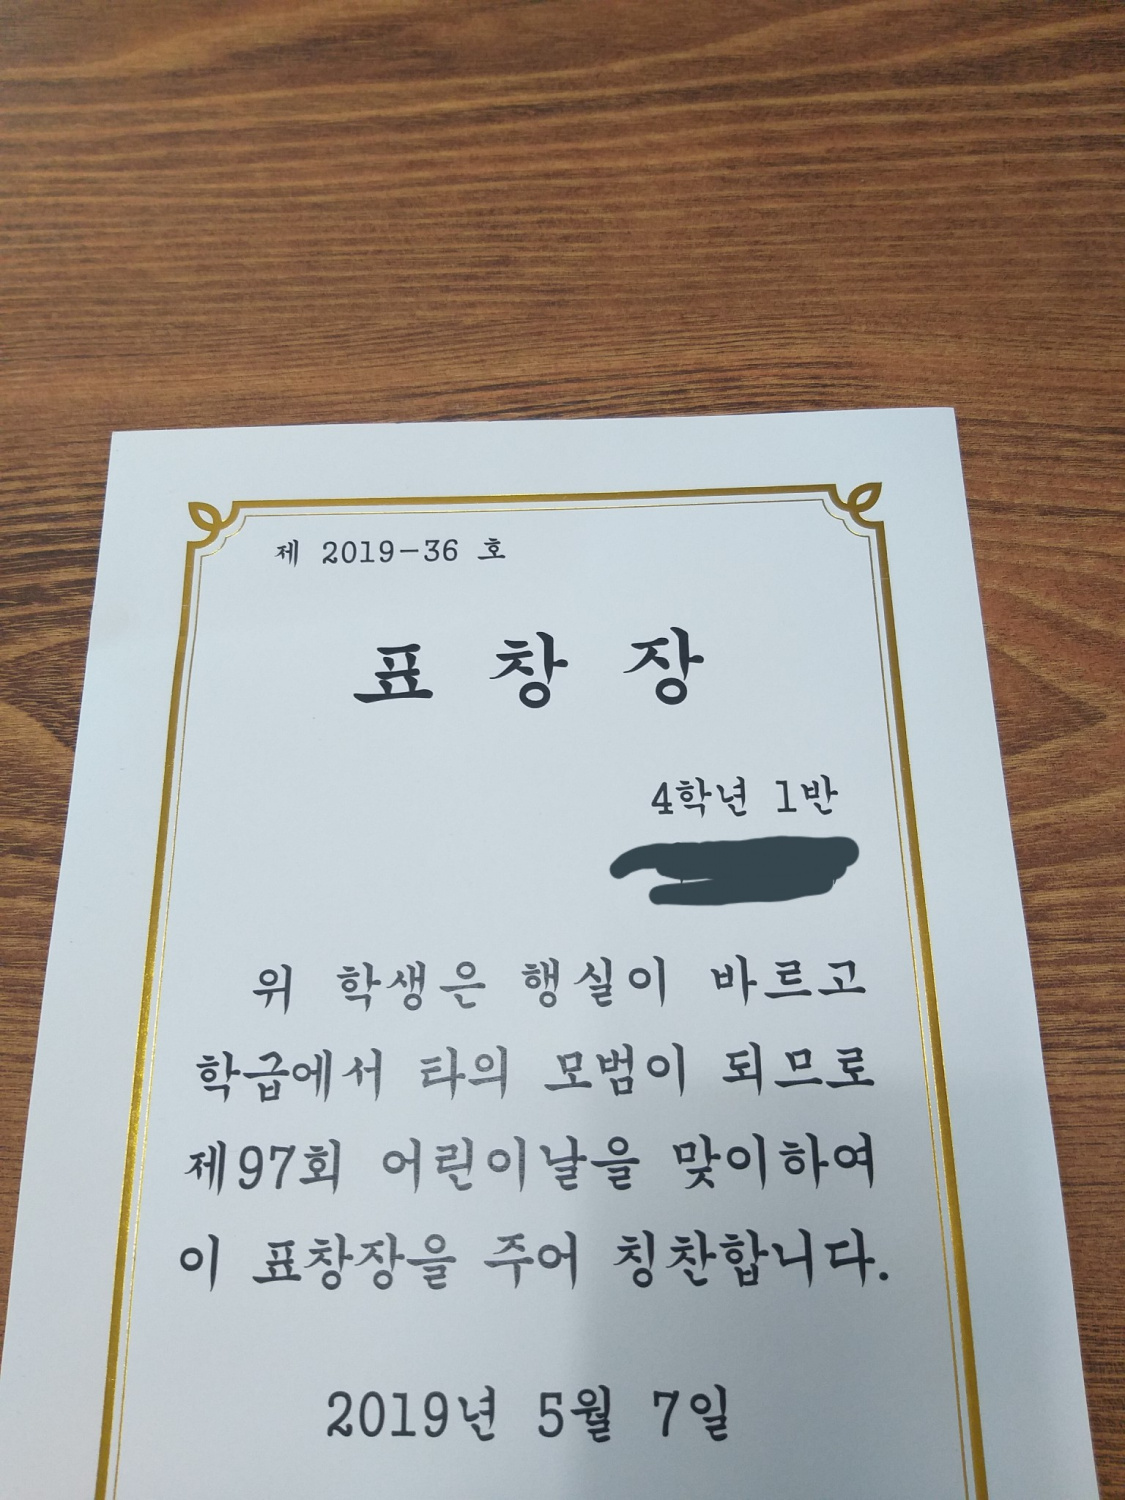 제 2019-36 호
표 창 장
4학년 1반
위 학생은 행실이 바르고
학급에서 타의 모범이 되므로
제97회 어린이날을 맞이하여
이 표창장을 주어 칭찬합니다.
2019년 5월 7일